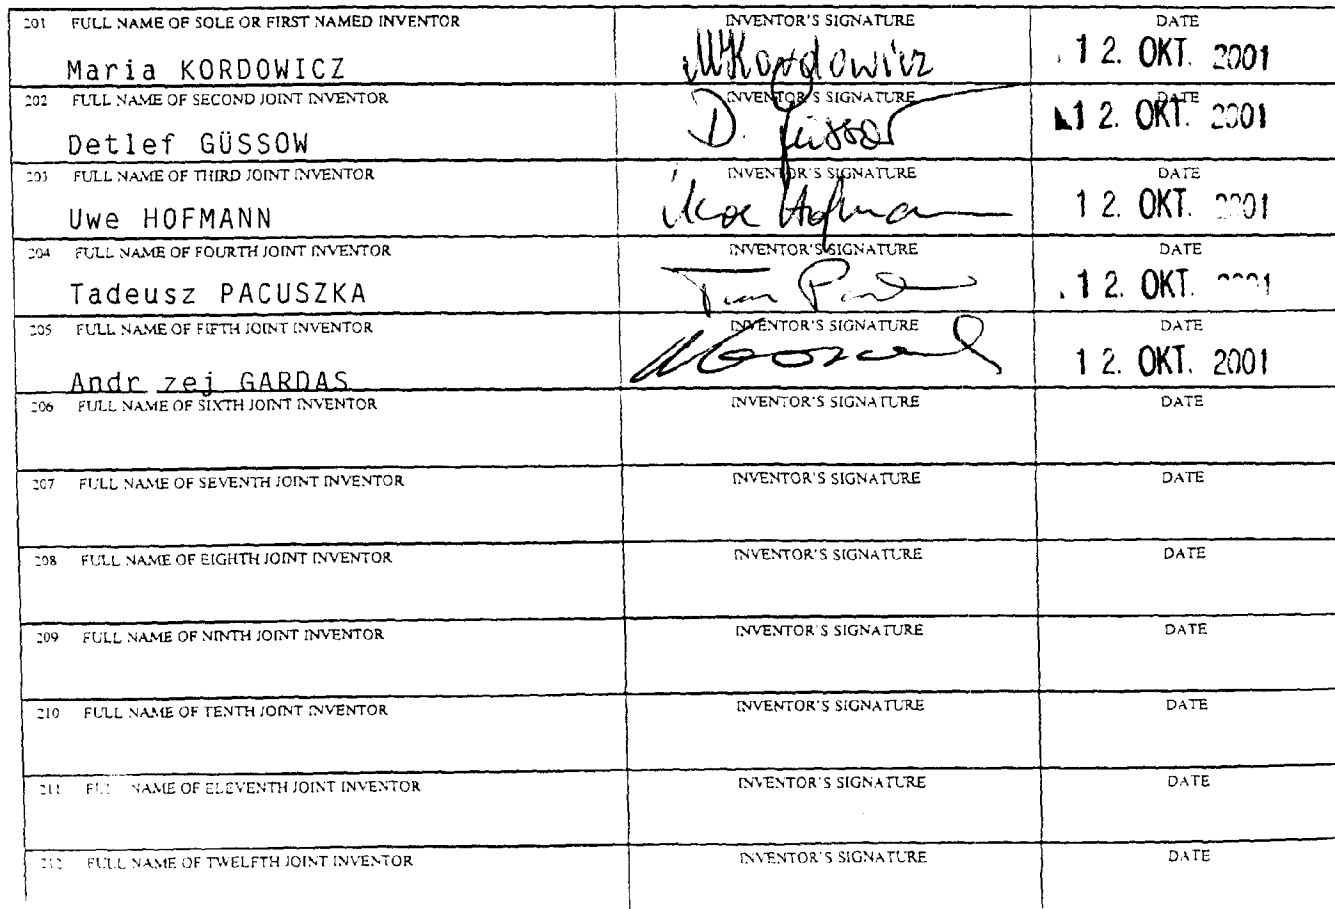 201 FULL NAME OF SOLE OR FIRST NAMED INVENTOR INVENTOR'S SIGNATURE DATE
Maria KORDOWICZ MKordowicz 12. OKT. 2001
202 FULL NAME OF SECOND JOINT INVENTOR INVENTOR'S SIGNATURE DATE
Detlef GÜSSOW D. Güssow 12. OKT. 2001
203 FULL NAME OF THIRD JOINT INVENTOR INVENTOR'S SIGNATURE DATE
Uwe HOFMANN Uwe Hofmann 12. OKT. 2001
204 FULL NAME OF FOURTH JOINT INVENTOR INVENTOR'S SIGNATURE DATE
Tadeusz PACUSZKA 12. OKT.
205 FULL NAME OF FIFTH JOINT INVENTOR INVENTOR'S SIGNATURE DATE
Andr zej GARDAS 12. OKT. 2001
206 FULL NAME OF SIXTH JOINT INVENTOR INVENTOR'S SIGNATURE DATE
207 FULL NAME OF SEVENTH JOINT INVENTOR INVENTOR'S SIGNATURE DATE
208 FULL NAME OF EIGHTH JOINT INVENTOR INVENTOR'S SIGNATURE DATE
209 FULL NAME OF NINTH JOINT INVENTOR INVENTOR'S SIGNATURE DATE
210 FULL NAME OF TENTH JOINT INVENTOR INVENTOR'S SIGNATURE DATE
211 NAME OF ELEVENTH JOINT INVENTOR INVENTOR'S SIGNATURE DATE
212 FULL NAME OF TWELFTH JOINT INVENTOR INVENTOR'S SIGNATURE DATE